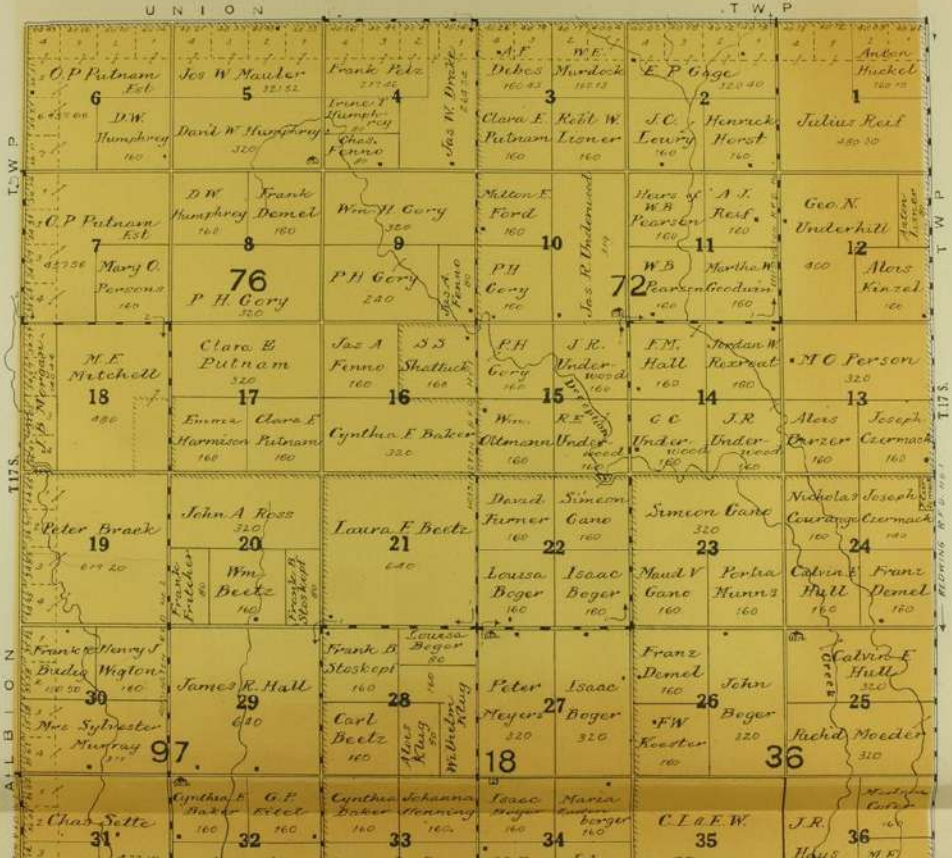 UNION TWP
O.P Putnam
Est
6
D.W.
Humphrey
160
Jos W Mauler
5
David W Humphrey
320
Frank Pelz
4
Irene I
Humphrey
80
Chas.
Fenno
80
Jas W. Drake
A.F
Debes
W.E.
Murdock
3
Clara E.
Putnam
160
Robt W.
Lisner
160
E P Gage
320 40
2
J.C.
Lowry
160
Henrick
Horst
160
Anton
Huckel
1
Julius Reif
TWP.
O.P Putnam
Est
7
Mary O.
Persons
160
D W
Humphrey
160
Frank
Demel
160
8
76
P H Gory
320
Wm H Gory
320
9
P H Gory
240
Jas A
Fenno
80
Milton E
Ford
160
10
P H
Gory
160
Jas R Underwood
72
Heirs of
W B
Pearson
160
A J.
Reif
160
11
W B
Pearson
160
Martha W
Goodwin
160
Geo. N.
Underhill
12
400
Anton
Lisner
80
Alois
Kinzel
160
TWP
M.F.
Mitchell
18
480
Clara E
Putnam
320
17
Emma
Harmison
160
Clara E
Putnam
160
Jas A
Fenno
160
S S
Shattuck
160
16
Cynthia E Baker
320
P.H
Gory
160
J R.
Underwood
160
15
Wm.
Oltmann
160
R E
Underwood
160
Deception
F M.
Hall
160
Jordan W
Rexroat
160
14
G C
Underwood
160
J.R
Underwood
160
M O Person
320
13
Alois
Burzer
160
Joseph
Czermack
160
T.17 S.
T.17 S.
Peter Brack
19
619 20
John A Ross
320
20
Frank
Fritcher
80
Wm
Beetz
160
Frank B.
Stoskopf
80
Laura E Beetz
21
640
David
Furner
160
Simeon
Gano
160
22
Louisa
Boger
160
Isaac
Boger
160
Simeon Gano
320
23
Maud V
Gano
160
Portia
Munns
160
Nicholas
Courange
160
Joseph
Czermack
140
24
Calvin E
Hull
160
Franz
Demel
160
ALBION
Frank
Budig
Henry J
Wigton
160
30
Mrs Sylvester
Murray
97
James R. Hall
29
640
Frank B.
Stoskopf
160
Louisa
Boger
80
28
160
Carl
Beetz
160
Alois
Klug
80
Wilhelm
Klug
Peter
Meyers
320
27
Isaac
Boger
320
18
Franz
Demel
160
26
John
Boger
320
F W
Koester
160
36
Creek
Calvin E
Hull
320
25
Richd Moeder
320
Chas Sette
31
Cynthia E
Baker
160
G. P.
160
32
Cynthia
Baker
160
Johanna
Henning
160
33
Isaac
Boger
160
Maria
160
34
C L & E. W.
35
J.R.
Hays
160
36
M.F.